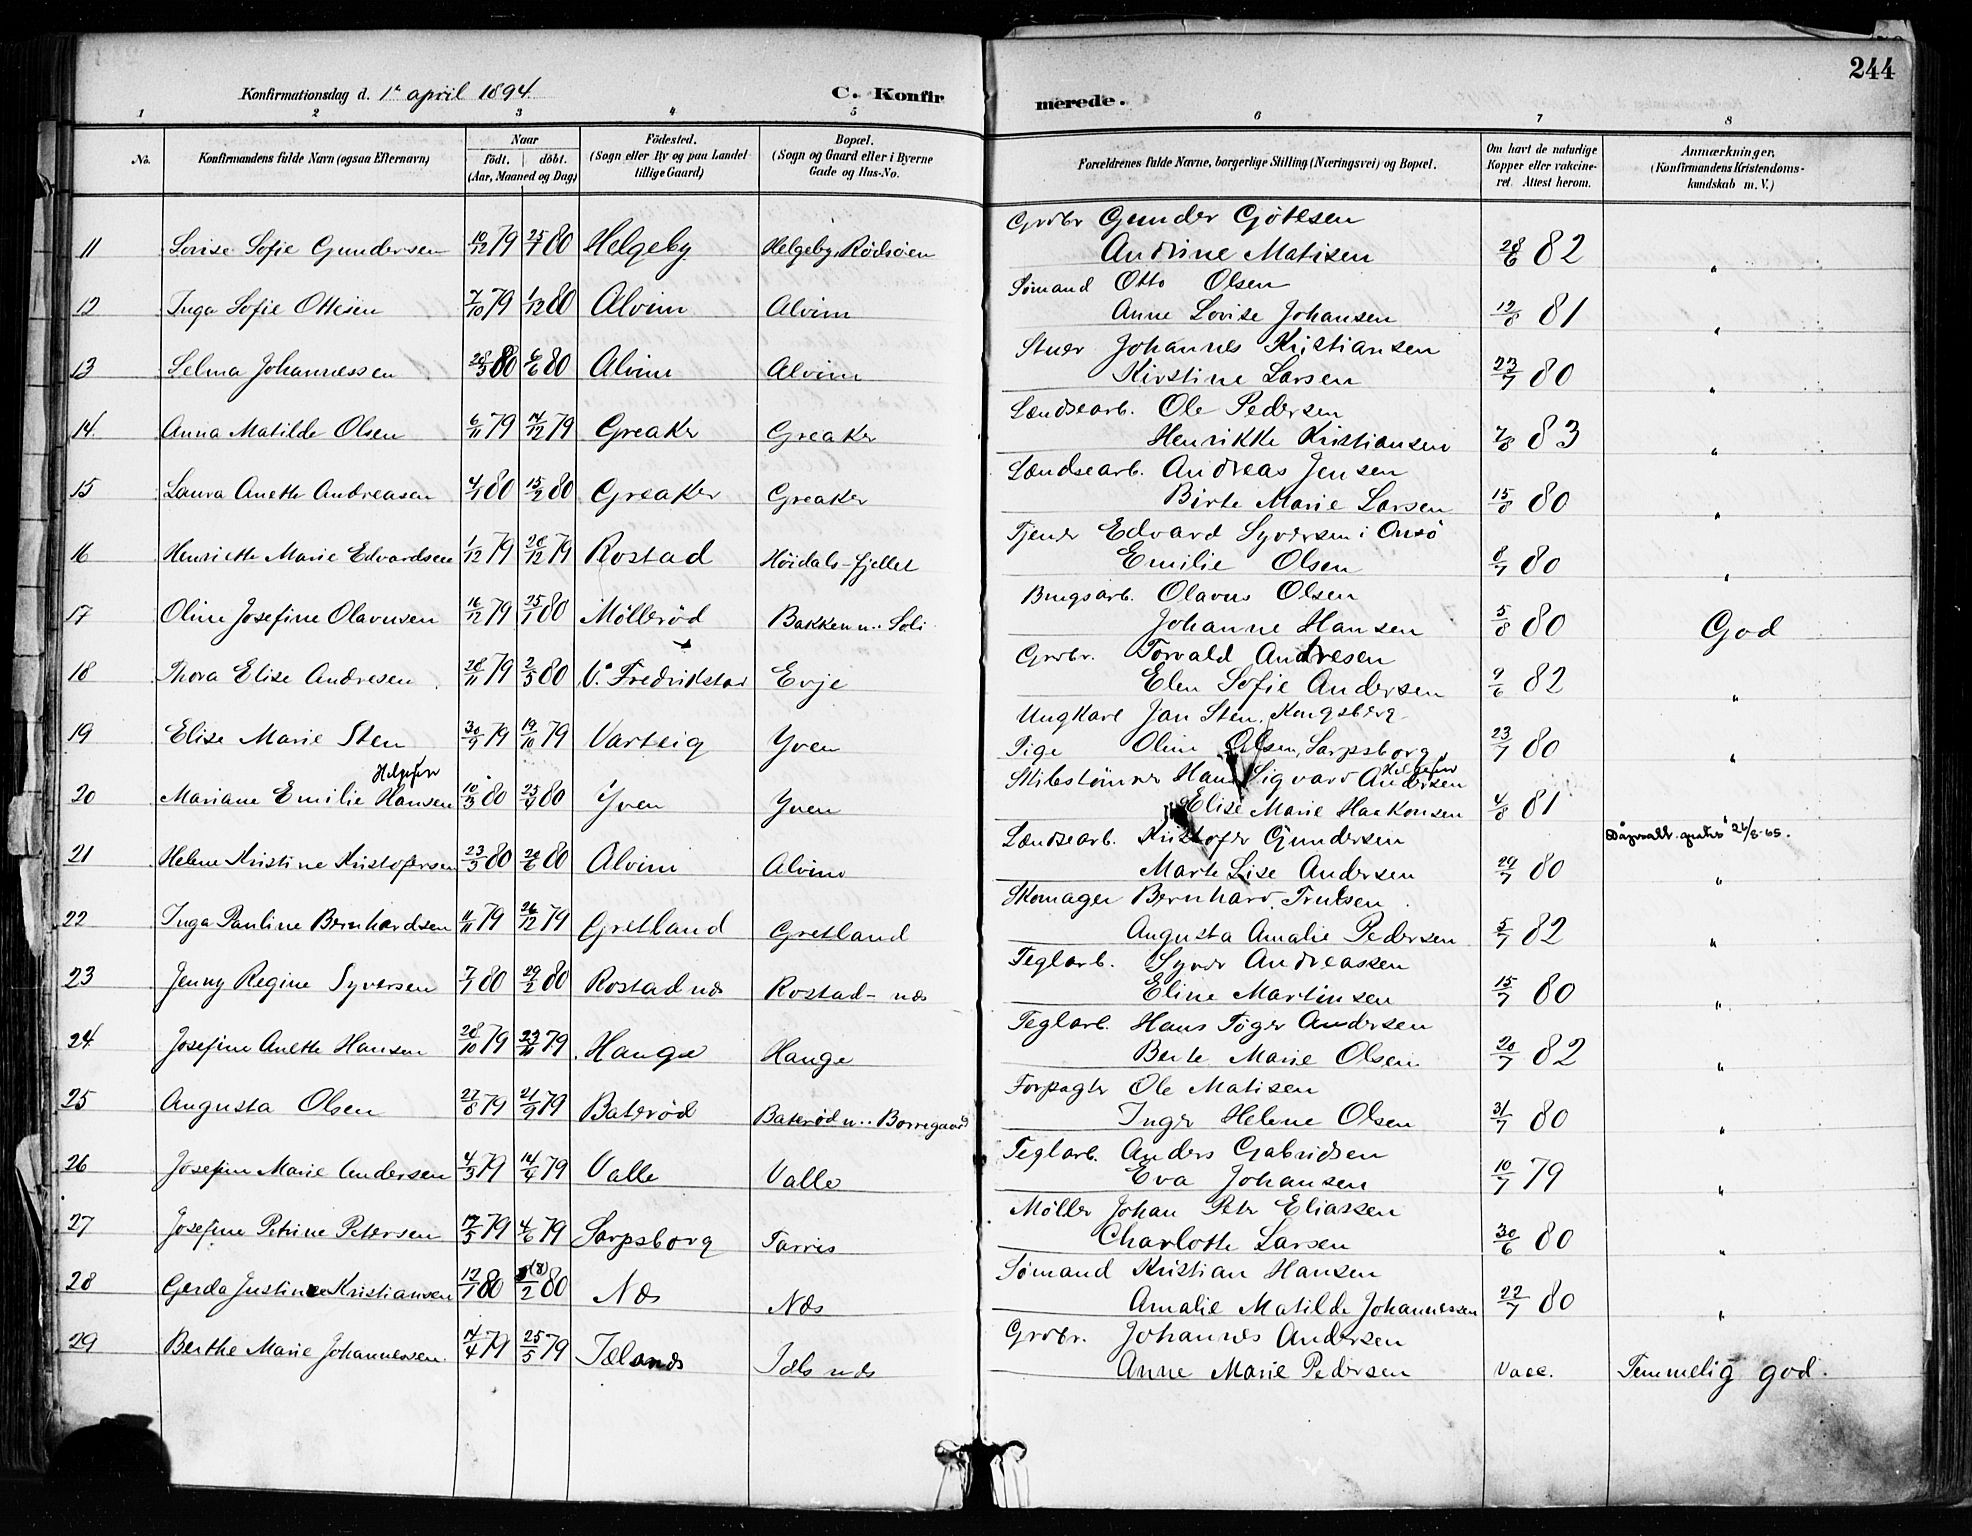 244
Konfirmationsdag d. 1ste april 1894.
C. Konfirmerede.
1 2 3 4 5 6 7 8
No.
Konfirmandens fulde Navn (ogsaa Efternavn)
Naar
født. døbt.
(Aar, Maaned og Dag)
Fødested.
(Sogn eller By og paa Landet
tillige Gaard)
Bopæl.
(Sogn og Gaard eller i Byerne
Gade og Hus-No.
Forældrenes fulde Navne, borgerlige Stilling (Næringsvei) og Bopæl.
Om havt de naturlige
Kopper eller vakcine-
ret. Attest herom.
Anmærkninger,
(Konfirmandens Kristendoms-
kundskab m. V.)
Grdbr Gunder Gjötesen
11 Lovise Sofie Gundersen 19/12 79 25/1 80 Helgeby Helgeby, Rödsöen Andrine Matisen 28/6 82 "
Sømand Otto Olsen
12 Inga Sofie Ottesen 7/10 79 1/12 80 Alvim Alvim Anne Lovise Johansen 12/8 81 "
Stuer Johannes Kristiansen
13 Selma Johannessen 28/3 80 6/6 80 Alvim Alvim Kirstine Larsen 23/7 80 "
Lændsearb. Ole Pedersen
14. Anna Matilde Olsen 6/11 79 14/12 79 Greaker Greaker Henrikke Kristiansen 7/8 83 "
Lændsearb. Andreas Jensen
15 Laura Anette Andreasen 4/1 80 15/2 80 Greaker Greaker Birte Marie Larsen 15/8 80 "
Tjener Edvard Syversen i Onsö
16 Henriette Marie Edvardsen 1/12 79 26/12 79 Rostad Höidals-fjellet Emilie Olsen 8/7 80 "
Brugsarb. Olavus Olsen
17 Oline Josefine Olavusen 16/12 79 25/1 80 Mölleröd Bakken u.. Soli Johanne Hansen 5/8 80 God
Grdbr. Torvald Andresen
18 Thora Elise Andresen 28/11 79 2/5 80 V. Fredrikstad Evje Elen Sofie Andersen 9/6 82 "
Ungkarl Jan Sten, Kongsberg
19 Elise Marie Sten 30/9 79 19/10 79 Varteig Yven Pige Oline Olsen, Sarpsborg 23/7 80 "
Helgesen
Stibstømrer Hans Sigvard Andersen
20 Mariane Emilie Hansen 10/3 80 25/4 80 Yven Yven Elise Marie Haakonsen 4/8 81 "
Lændsearb. Kristofer Gundersen 26/8-65.
21 Helene Kristine Kristofersen 23/3 80 20/6 80 Alvim Alvim Marte Lise Andersen 29/7 80 "
Skomager Bernhard Trulsen
22 Inga Pauline Bernhardsen 11/11 79 26/12 79 Gretland Gretland Augusta Amalie Pedersen 5/7 82 "
Teglarb. Syver Andreassen
23 Jenny Regine Syversen 7/1 80 29/2 80 Rostad næs Rostad-næs Eline Martinsen 15/7 80 "
Teglarb. Hans Töger Andersen
24 Josefine Anette Hansen 28/10 79 23/11 79 Hauge Hauge Berte Marie Olsen 20/7 82 "
Forpagter Ole Matisen
25 Augusta Olsen 27/8 79 21/9 79 Bateröd Bateröd u.. Borregaard Inger Helene Olsen 31/7 80 "
Teglarb. Anders Gabrielsen
26 Josefine Marie Andersen 4/3 79 14/4 79 Valle Valle Eva Johansen 10/7 79 "
Möller Johan Peter Eliassen
27 Josefine Petrine Petersen 17/5 79 4/6 79 Sarpsborg Tarris Charlotte Larsen 30/6 80 "
Sømand Kristian Hansen
28 Gerda Justine Kristiansen 12/1 80 (8)/2 80 Næs Næs Amalie Matilde Johannessen 22/7 80 "
Grdbr. Johannes Andersen
29 Berthe Marie Johannessen 14/4 79 25/5 79 Anne Marie Pedersen Vacc. Temmelig god.